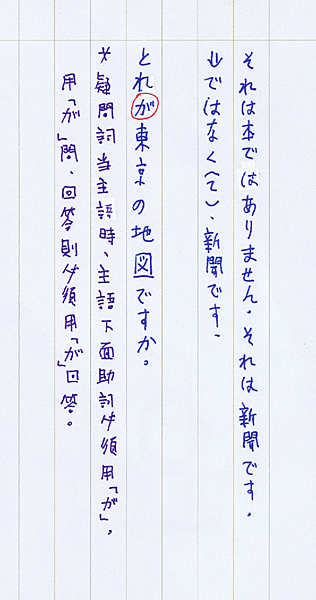 それは本ではありません。それは新聞です。
↓ではなく(て)、新聞です、
とれが東京の地図ですか。
*疑問詞当主語時、主語下面助詞必須用「が」。
用「が」問、回答則必須用「が」回答。